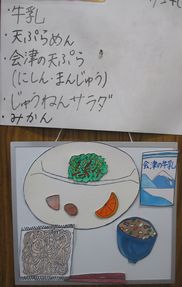 ・牛乳
・天ぷらめん
・会津の天ぷら
(にしん・まんじゅう)
・じゅうねんサラダ
・みかん
会津の牛乳